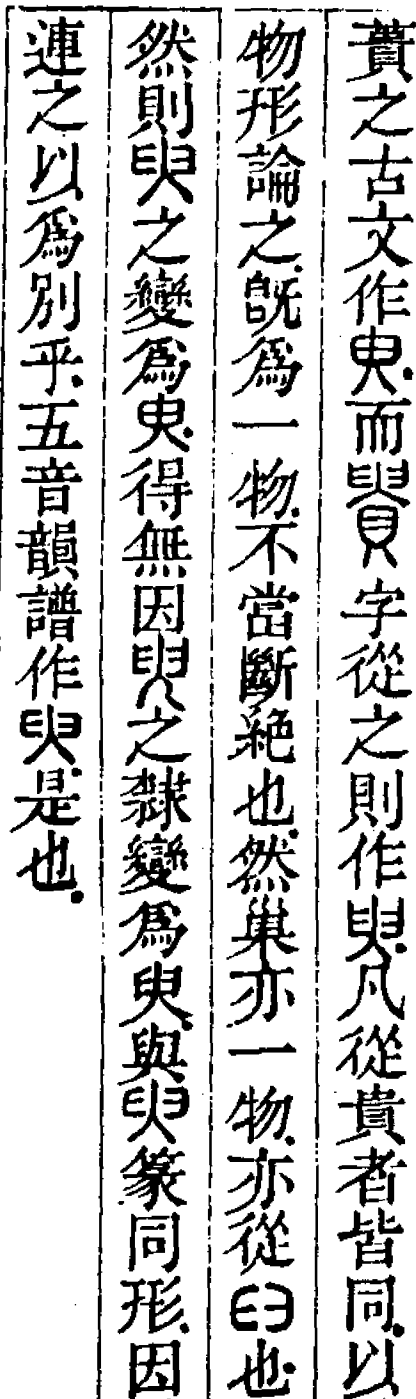 蕢之古文作臾.而貴字從之則作臾.凡從貴者皆同.以
物形論之.旣爲一物.不當斷絕也.然巢亦一物.亦從𦥑也.
然則臾之變爲臾.得無因臾之隸變爲臾.與臾篆同形.因
連之以爲別乎.五音韻譜作臾是也.